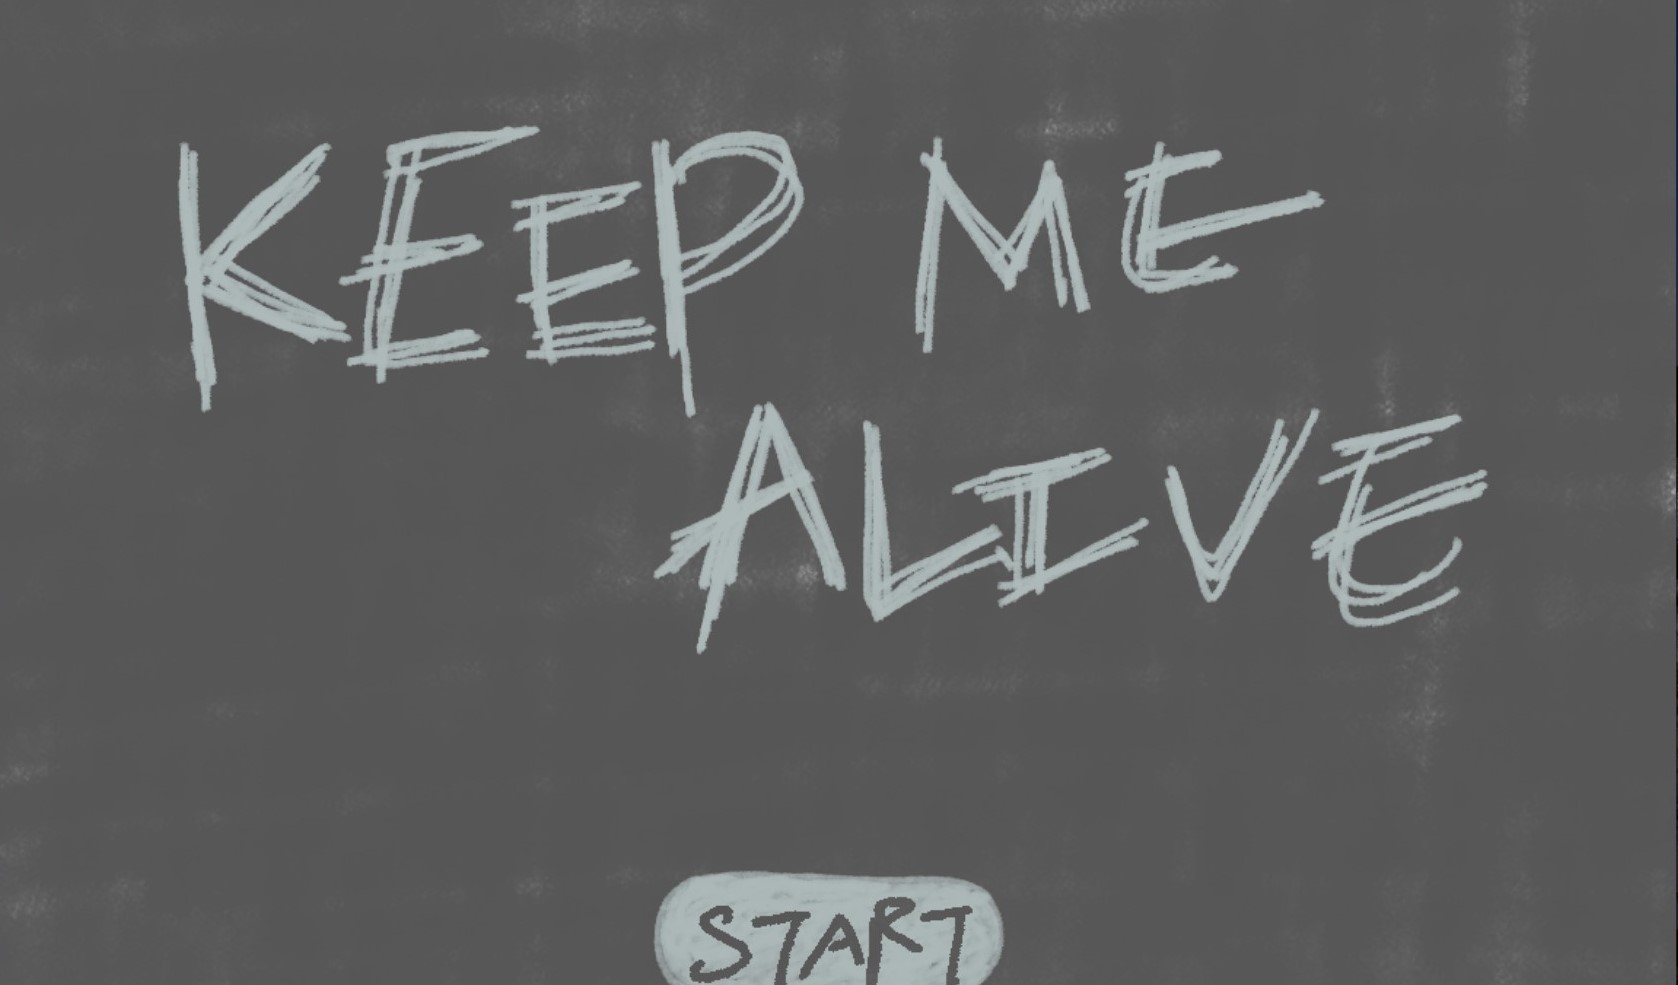 KEEP ME
ALIVE
START